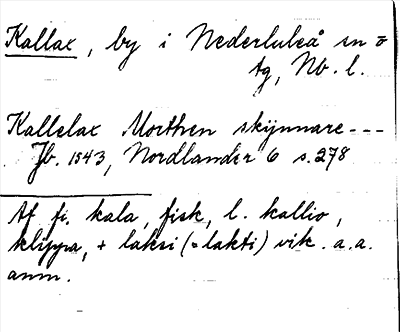 Kallax, by i Nederluleå sn o
tg, Nb. l.
Kallelax Morthen skijnnare---
Jb. 1543, Nordlander 6 s. 278
Af fi. kala, fisk, l. kallio,
klippa, + laksi (=lakti) vik. a.a.
anm.